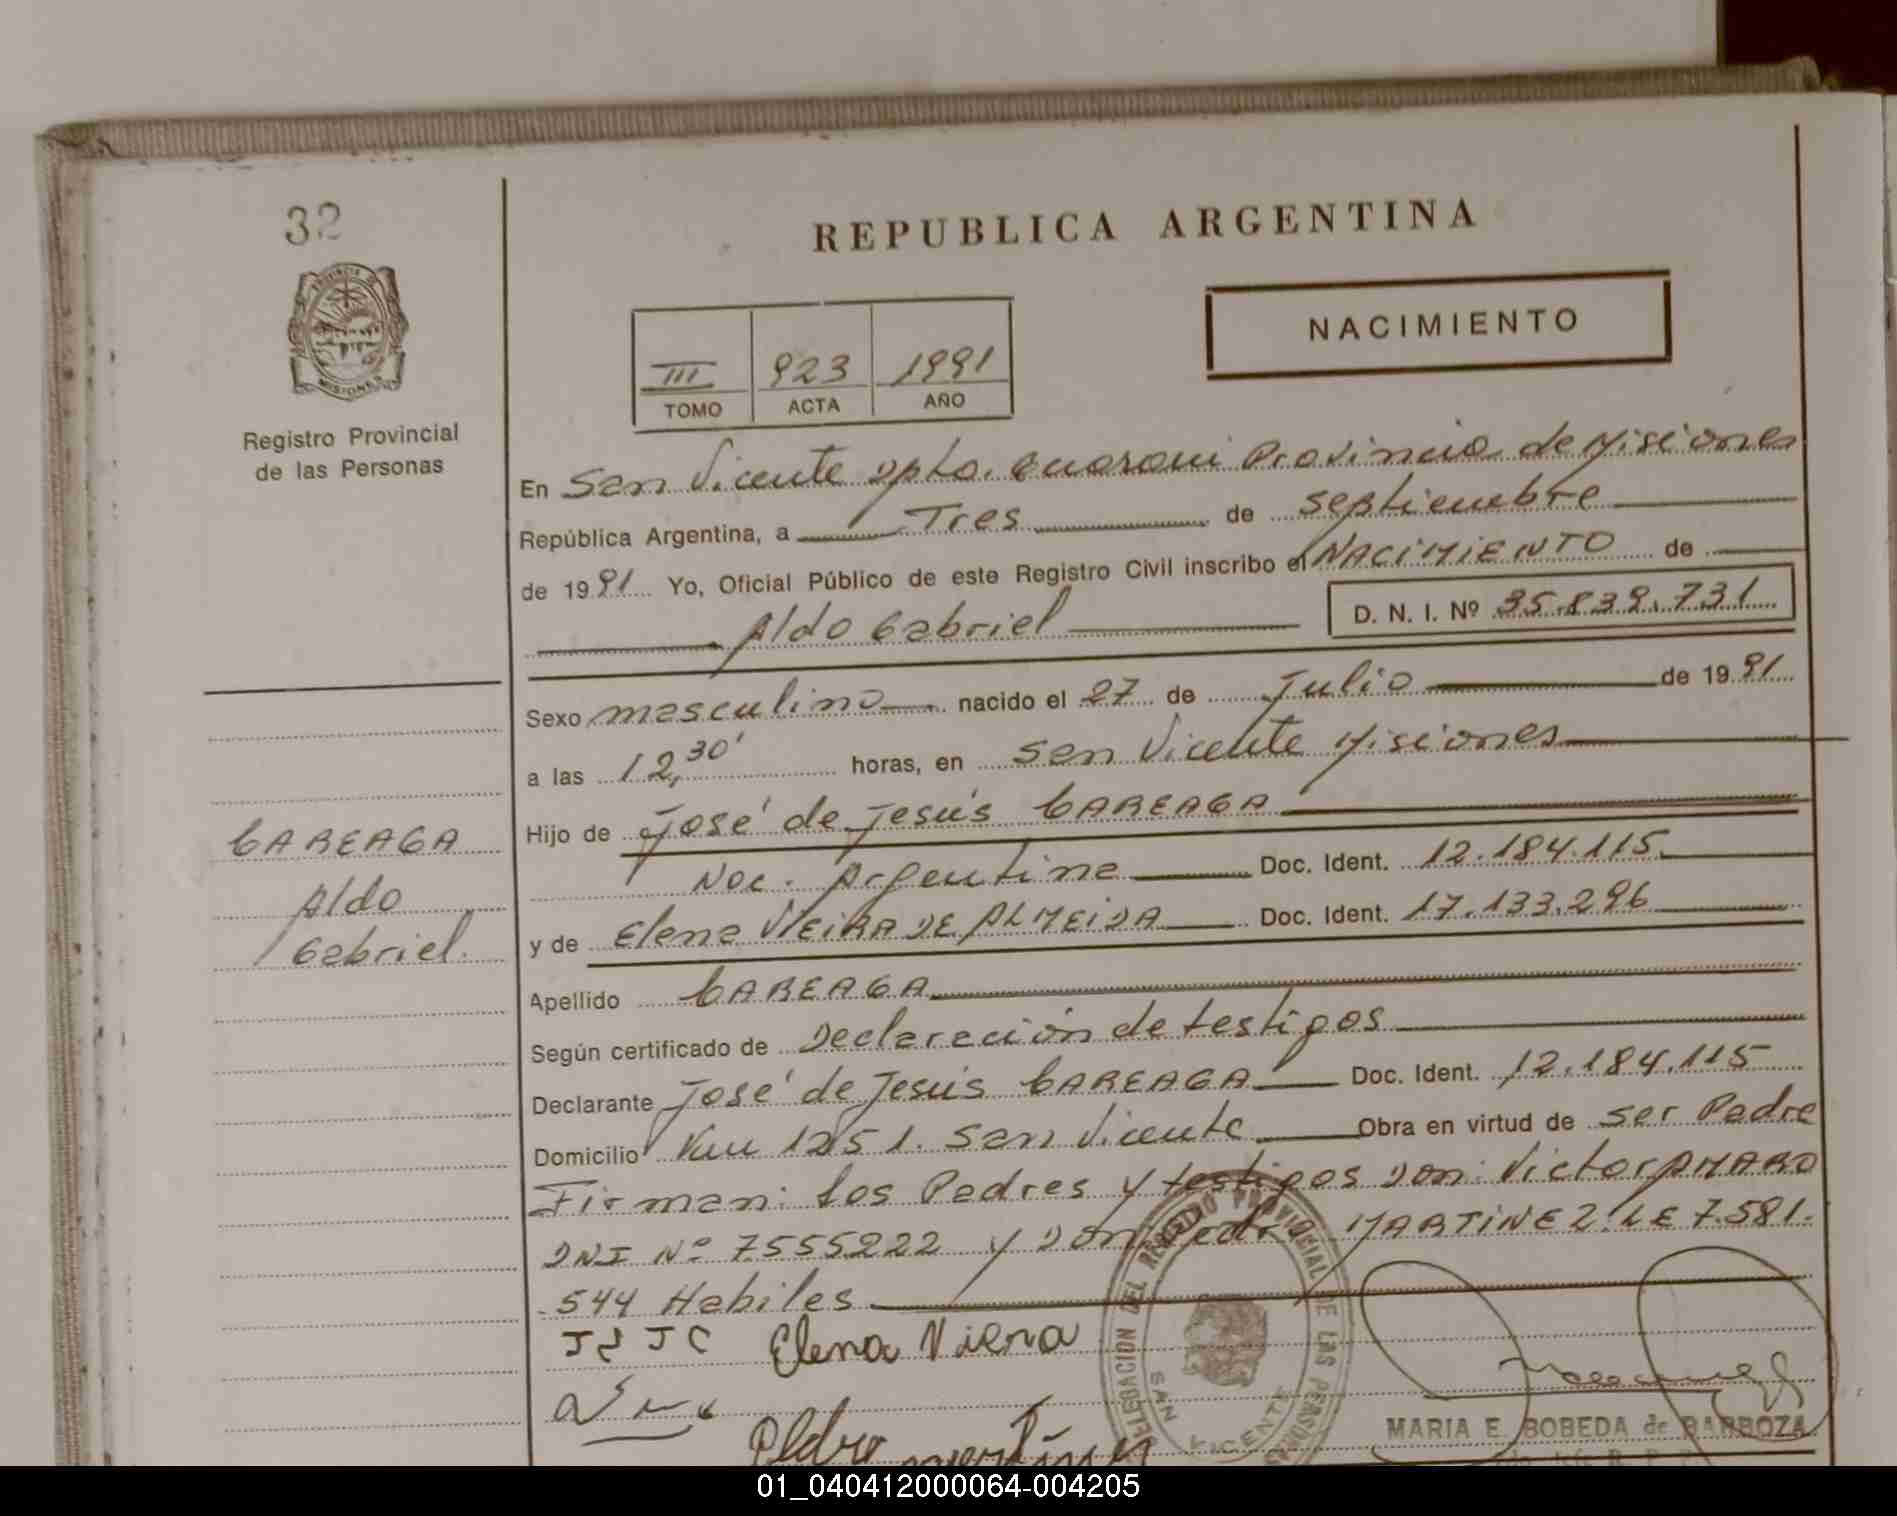 32
REPUBLICA ARGENTINA
NACIMIENTO
III 923 1991
TOMO ACTA AÑO
PROVINCIA DE
MISIONES
Registro Provincial
de las Personas
En San Vicente Dpto. Guaraní Provincia de Misiones
República Argentina, a Tres de septiembre
de 1991 Yo, Oficial Público de este Registro Civil inscribo el NACIMIENTO de
Aldo Gabriel D. N. I. Nº 35.839.731
Sexo masculino nacido el 27 de Julio de 1991
a las 12,30' horas, en San Vicente Misiones
Hijo de José de Jesús CAREAGA
Nac. Argentina Doc. Ident. 12.184.115
y de Elena VIEIRA DE ALMEIDA Doc. Ident. 17.133.296
Apellido CAREAGA
Según certificado de Declaración de testigos
Declarante José de Jesús CAREAGA Doc. Ident. 12.184.115
Domicilio Km 1251. San Vicente Obra en virtud de ser Padre
Firman: Los Padres y testigos Don: Victor AMARO
DNI Nº 7555222 y Don Pedro MARTINEZ LE 7.581.
544 Habiles
CAREAGA
Aldo
Gabriel.
J J C Elena Viera
Pedro Martínez
DELEGACION DEL REGISTRO PROVINCIAL DE LAS PERSONAS
SAN VICENTE
MARIA E. BOBEDA de BARBOZA
01_040412000064-004205